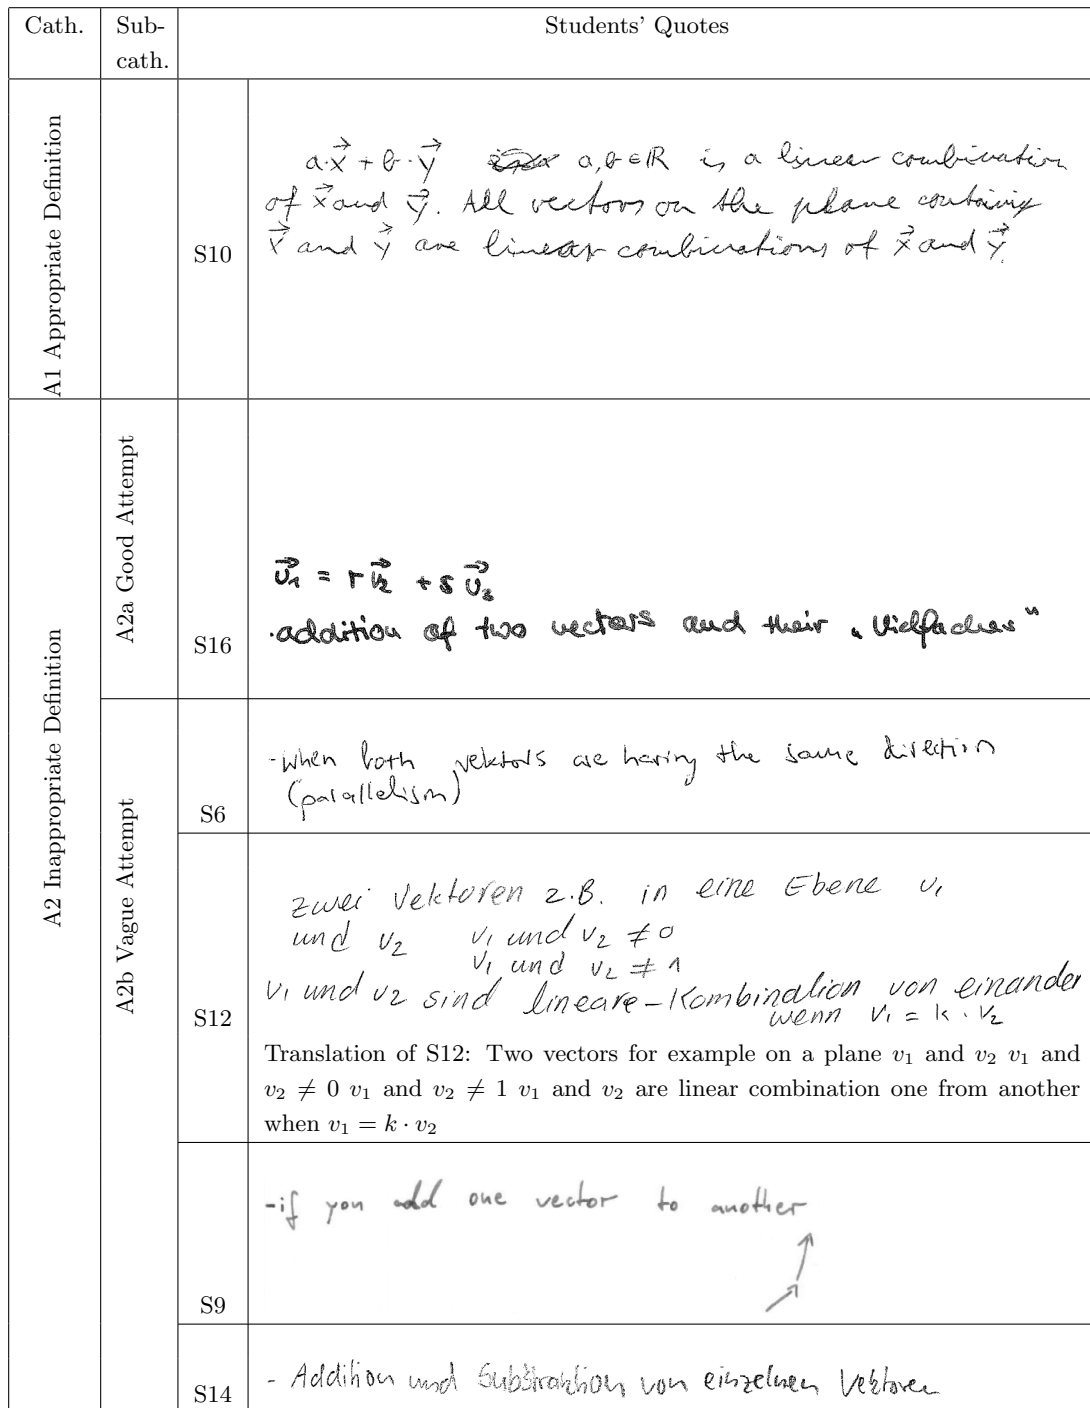 Cath.
Sub-
cath.
Students' Quotes
A1 Appropriate Definition
S10
a·x⃗ + b·y⃗ a,b∈ℝ is a linear combination
of x⃗ and y⃗. All vectors on the plane containing
x⃗ and y⃗ are linear combinations of x⃗ and y⃗.
A2 Inappropriate Definition
A2a Good Attempt
S16
v⃗₁ = r v⃗₂ + s v⃗₃
·addition of two vectors and their „Vielfaches"
A2b Vague Attempt
S6
-when both vektors are having the same direction
(parallelism)
S12
zwei Vektoren z.B. in eine Ebene v₁
und v₂ v₁ und v₂ ≠ 0
v₁ und v₂ ≠ 1
v₁ und v₂ sind lineare-Kombination von einander
wenn v₁ = k · v₂
Translation of S12: Two vectors for example on a plane v₁ and v₂ v₁ and
v₂ ≠ 0 v₁ and v₂ ≠ 1 v₁ and v₂ are linear combination one from another
when v₁ = k · v₂
S9
-if you add one vector to another
S14
- Addition und Substraktion von einzelnen Vektoren